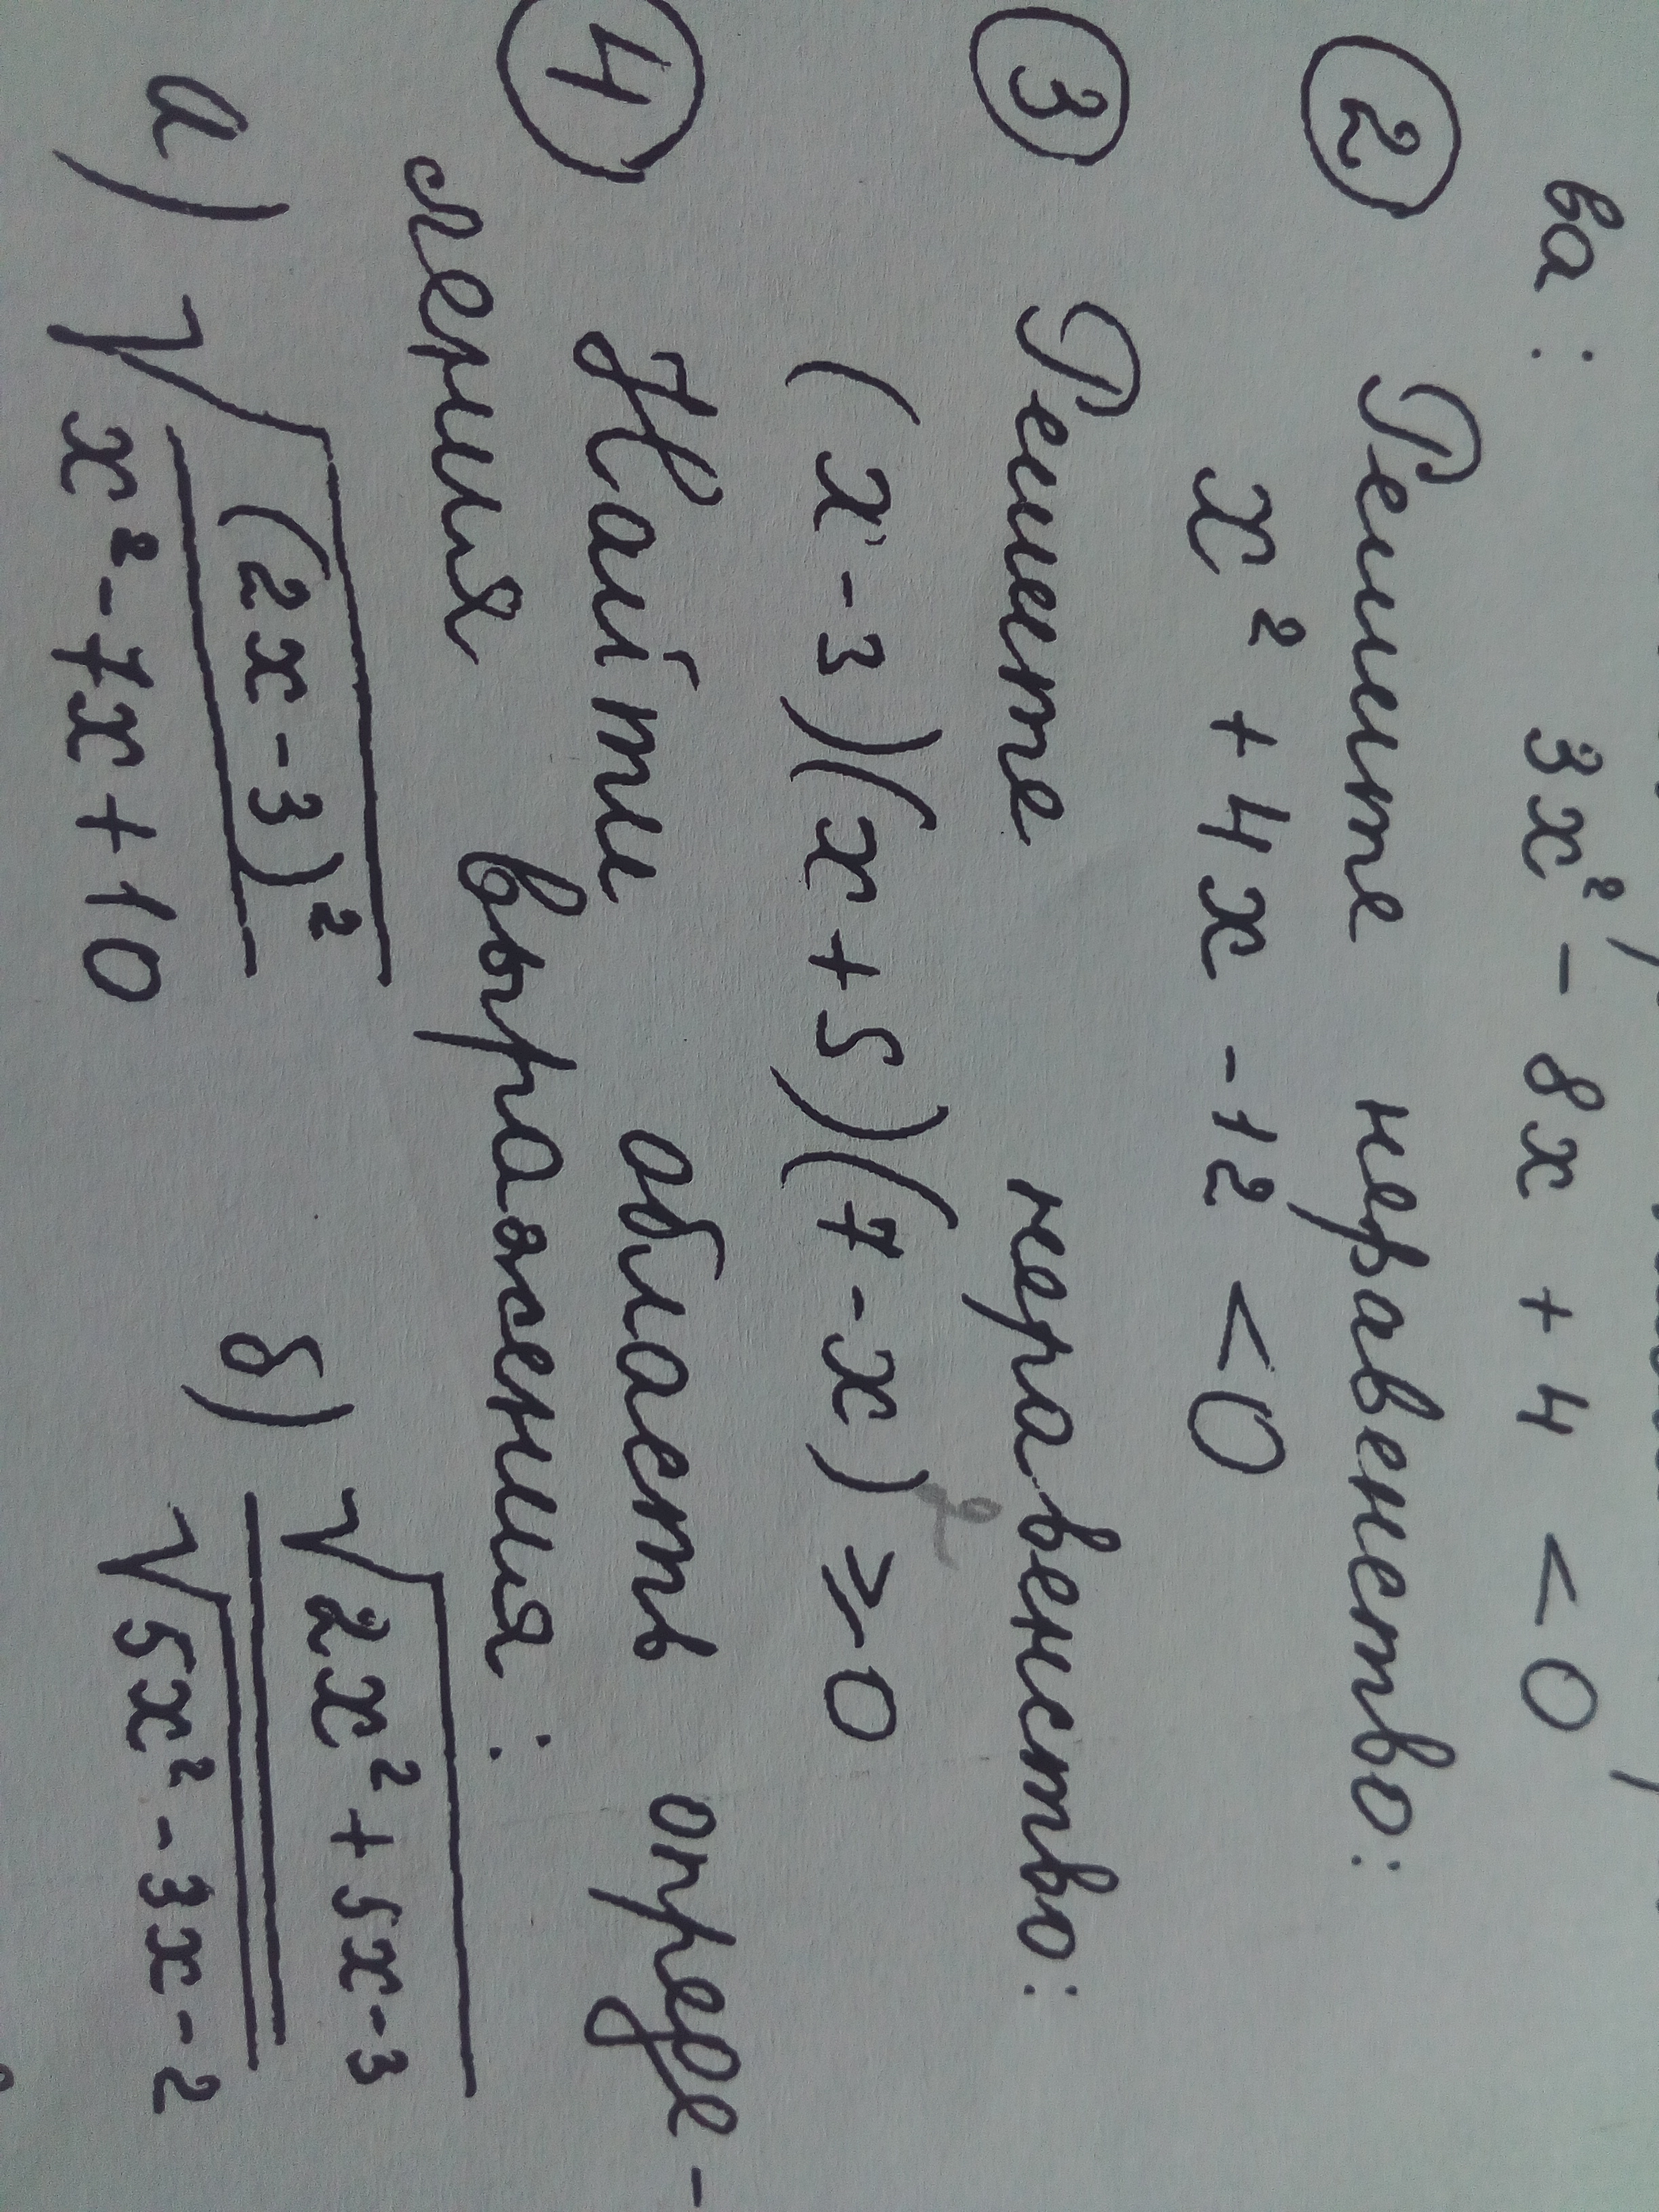 3x² - 8x + 4 < 0
ва:
② Решите неравенство:
x² + 4x - 12 < 0
③ Решите неравенство:
(x - 3)(x + 5)(7 - x)² ≥ 0
④ Найти область опреде-
ления выражения:
а) √((2x - 3)² / (x² - 7x + 10)) б) √(2x² + 5x - 3) / √(5x² - 3x - 2)